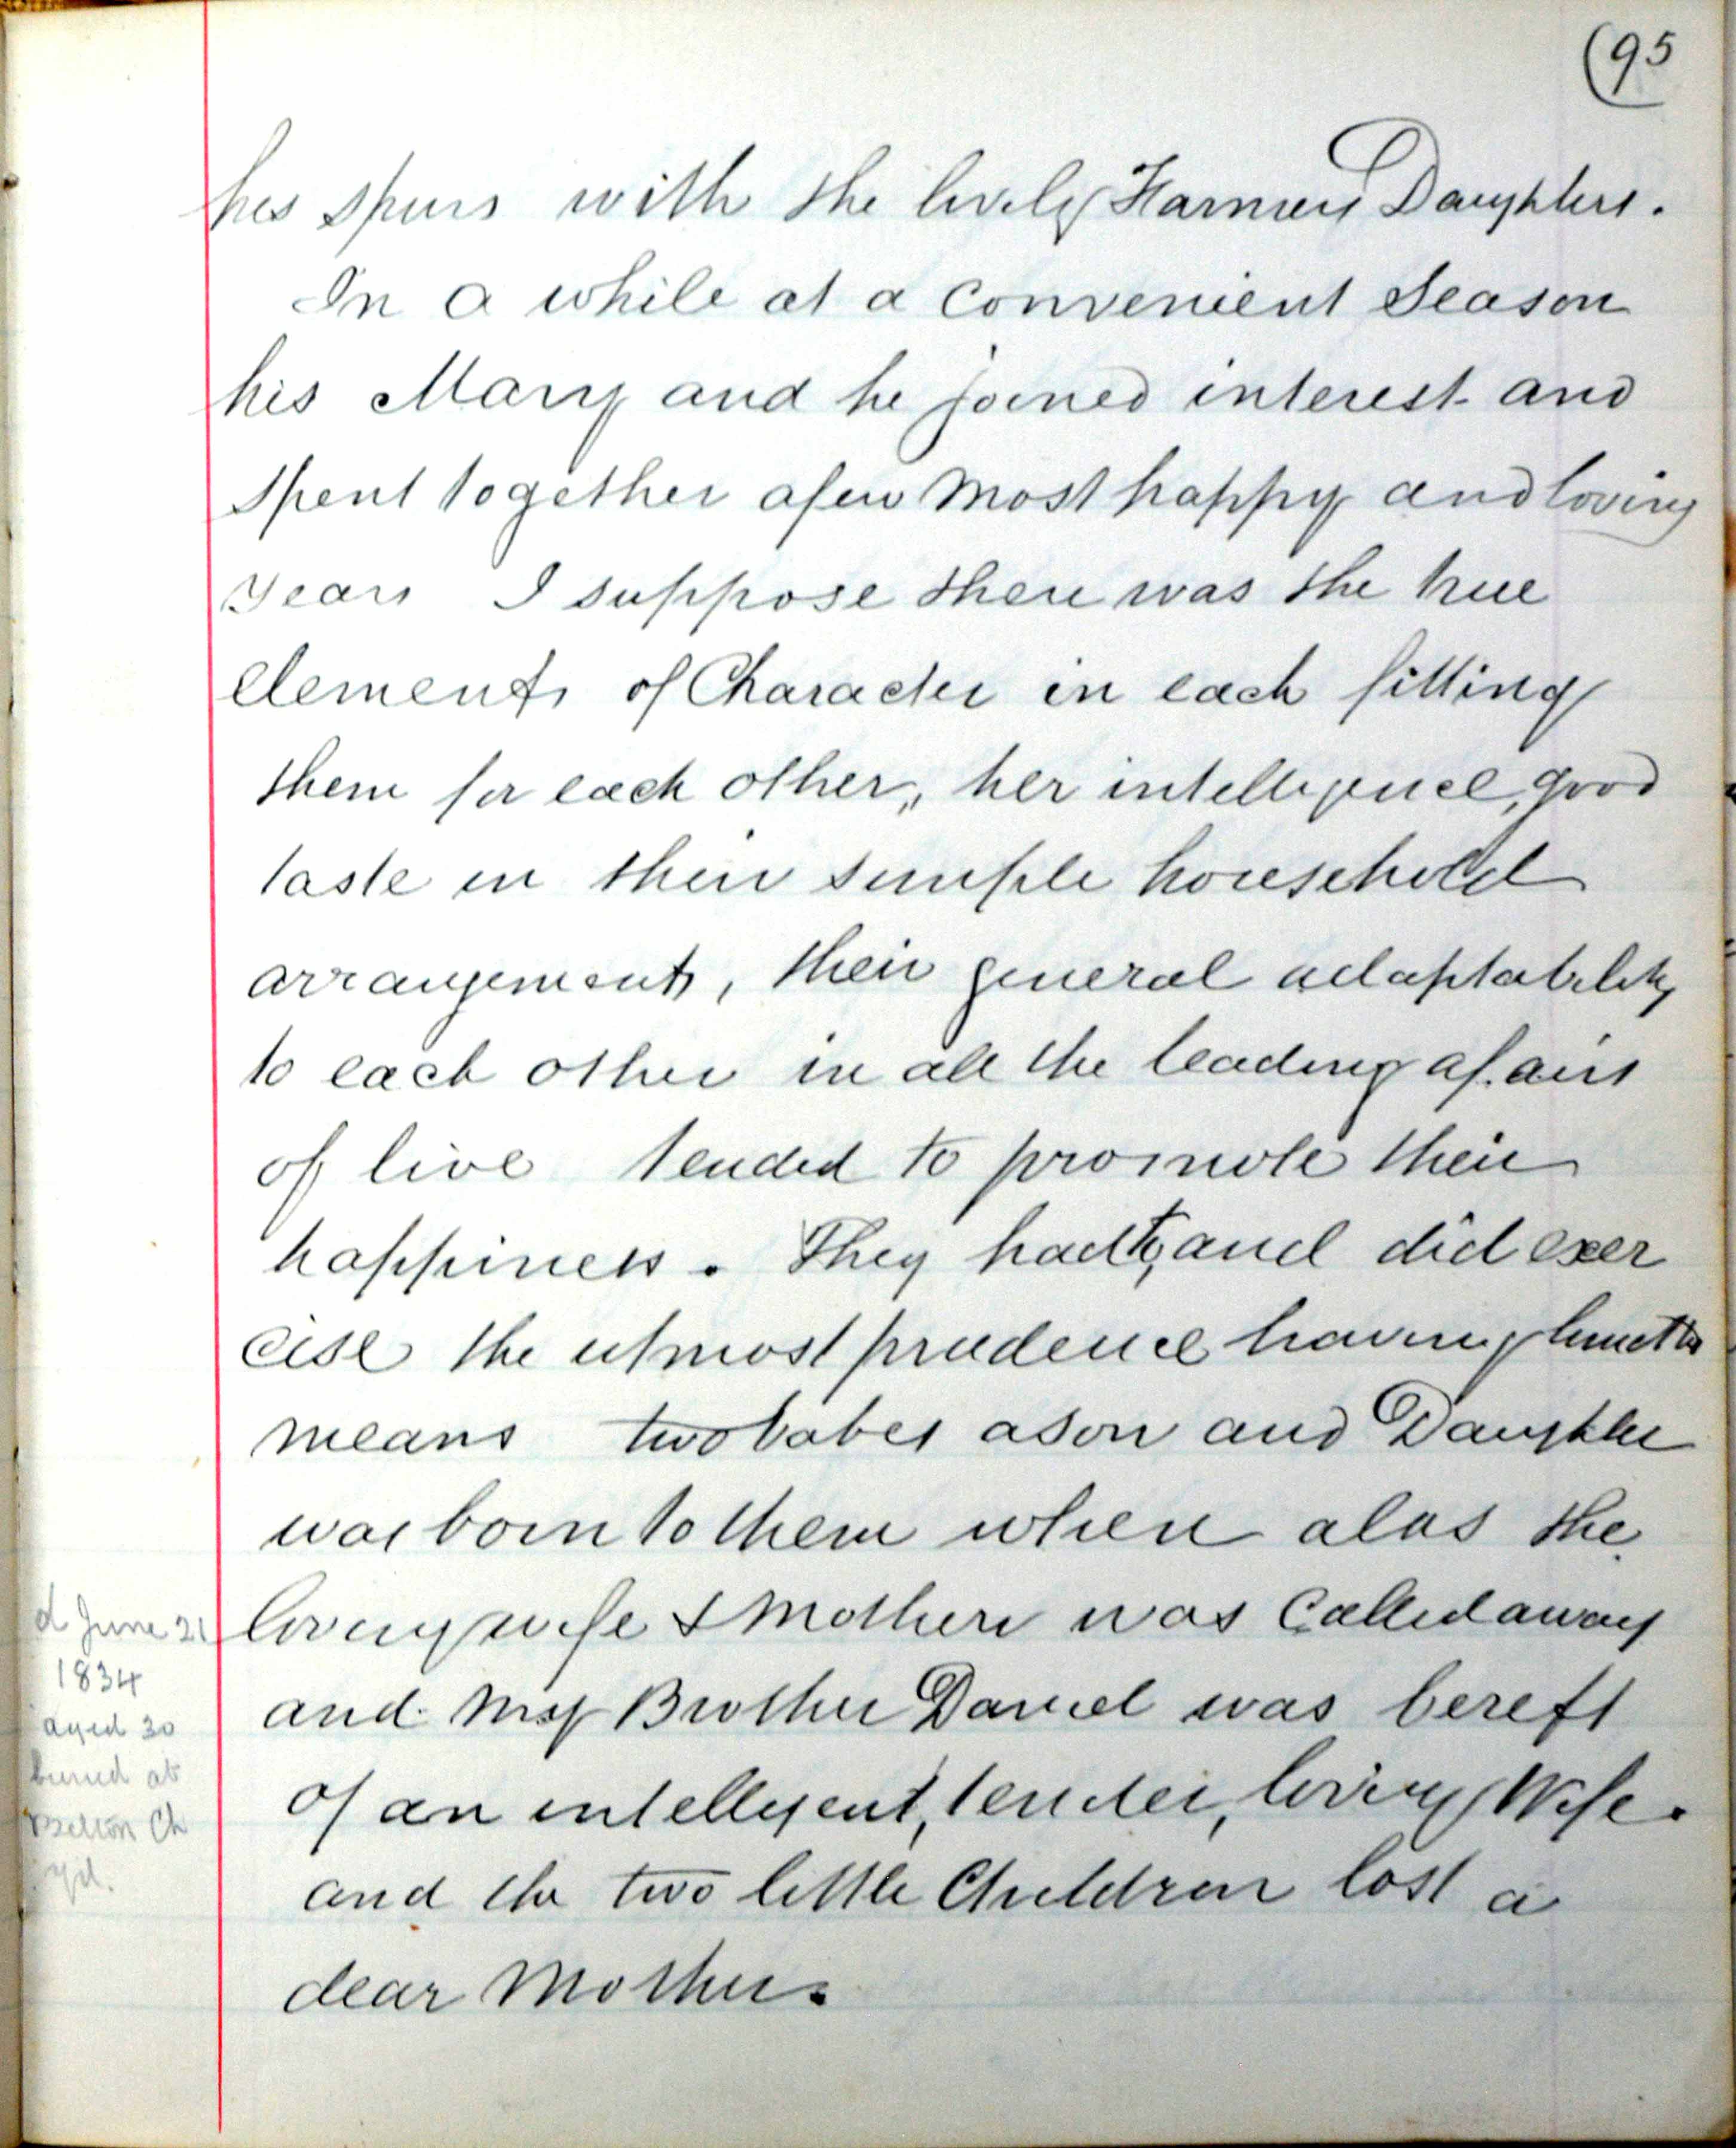 (95
his spurs with the lively Farmers Daughters.
In a while at a convenient Season
his Mary and he joined interest and
spent together a few most happy and loving
years I suppose there was the true
elements of Character in each fitting
them for each other, her intelligence, good
taste in their simple household
arrangements, their general adaptability
to each other in all the leading afairs
of live tended to promote their
happiness. They had to, and did exer
cise the utmost prudence having
means two babes a son and Daughter
was born to them when alas the
loving wife & mother was Called away
and my Brother Daniel was bereft
of an intelligent, tender, loving Wife.
and the two little Children lost a
dear Mother.
d June 21
1834
aged 30
buried at
Belton Ch
yd.